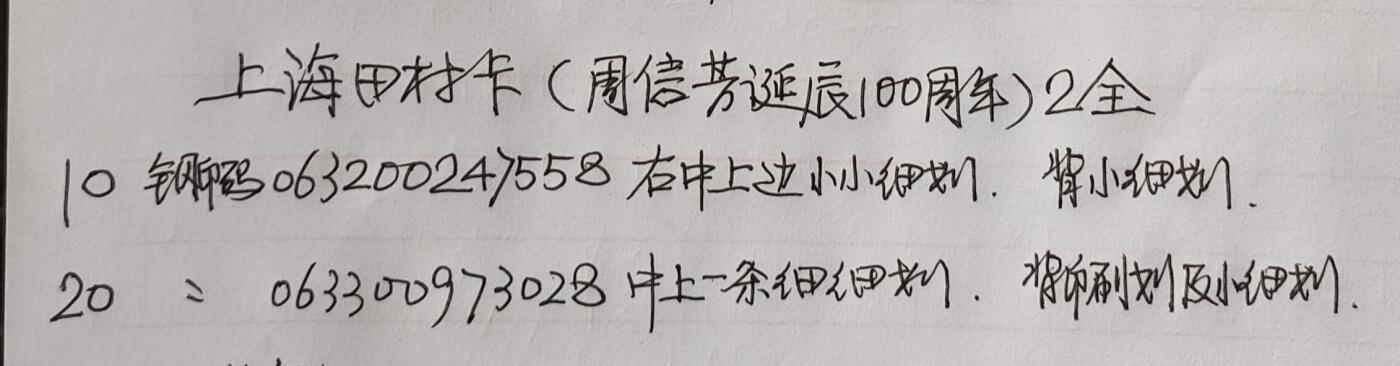 上海田村卡（周信芳诞辰100周年）2全
10 钢印码063200247558 右中上边小小细划. 背小细划.
20 〃 063300973028 中上一条细细划. 背印刷划及小细划.